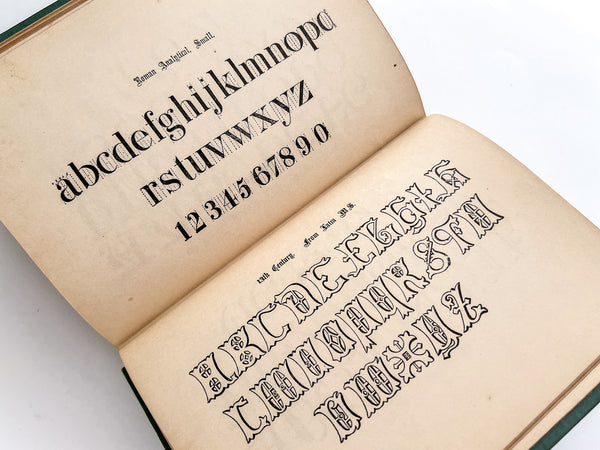 Roman Analytical, Small.
abcdefghijklmnopq
rstuvwxyz
1234567890
13th Century. From Latin M.S.
ABCDEFGHIK
LMNOPQRSTU
VWXYZ